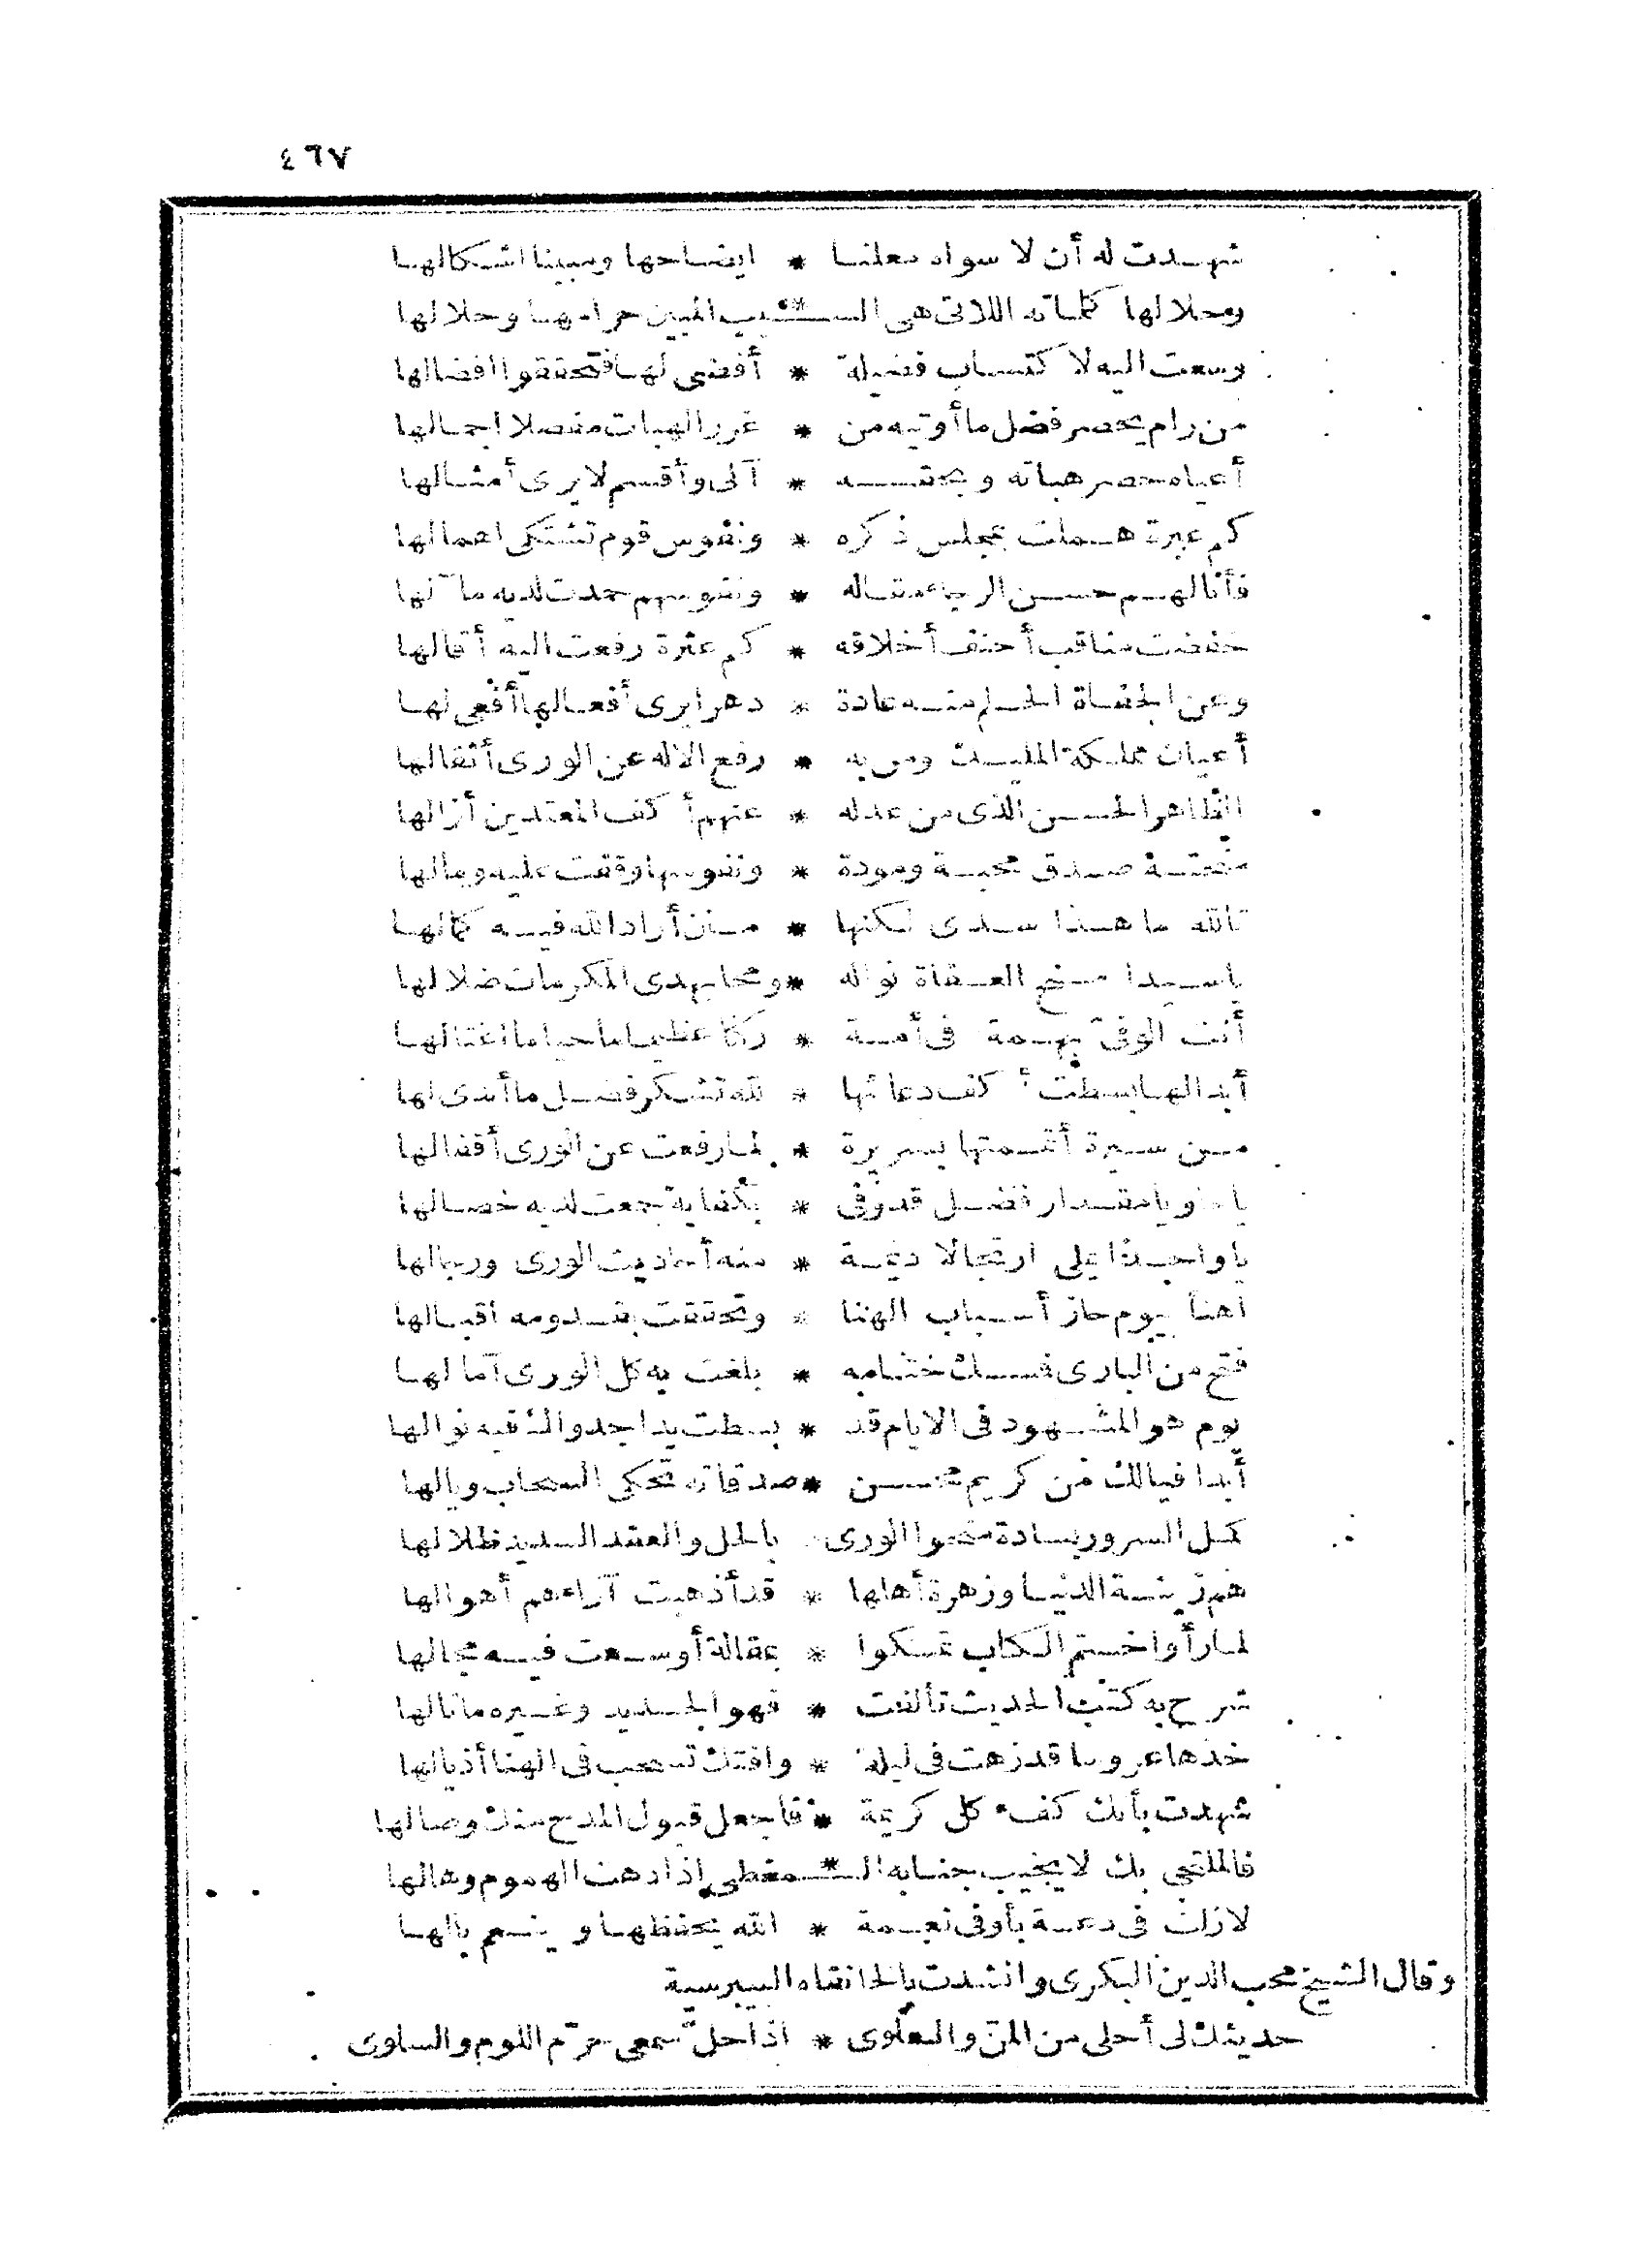 ٤٦٧
شهدت له أن لا سواه معلنا * ايضاحها ومبينا اشكالها
ومحلالها كلماته اللاتى هى الـ * المبين حرامها وحلالها
وسعت اليه لاكتساب فضيلة * أفضى لها فتحققوا افضالها
من رام يحصر فضل ما أوتيه من * غرر الهبات مفصلا اجمالها
أعياه حصر هباته وبحقه * آلى وأقسم لا يرى أمثالها
كم عبرة هملت بمجلس ذكره * ونفوس قوم تشتكى اهمالها
فأنالهم حسن الرجاء مقاله * ونفوسهم حمدت لديه مآلها
خفضت مناقب أحنف أخلاقه * كم عثرة رفعت اليه أقالها
وعن الجفاة الحلم منه عادة * دهرا يرى أفعالها أفعى لها
أعيان مملكة المليك ومن به * رفع الاله عن الورى أثقالها
الظاهر الحسن الذى من عدله * عنهم أكف المعتدين أزالها
صدق محبة ومودة * ونفوسها وقفت عليه ومالها
تالله ما هذا سدى لكنها * أراد الله فيه كمالها
ياسيدا العفاة نواله * ومحا بهدى المكرمات ضلالها
أنت الوفىّ بهمة فى أمة * ركنا عظيما ماحيا ما اغتالها
أبدالها بسطت أكف دعائها * لله تشكر فضل ما أبدى لها
من سيرة أتممتها بسريرة * لما رفعت عن الورى أقفالها
يا يا مقدار فضل قد وفى * بكفاية جمعت لديه خصالها
يا واحدا على ارتجالا ديمة * منه أحاديث الورى ورجالها
اهنأ بيوم حاز أسباب الهنا * وتحققت بقدومه اقبالها
فتح من البارى فمسك ختامه * بلغت به كل الورى آمالها
يوم هو المشهود فى الايام قد * بسطت يدا جدوالك فيه نوالها
أبدا فيالك من كريم محسن * صدقاته تحكى السحاب وبالها
كمل السرور بسادة منحوا الورى * بالحل والعقد السديد ظلالها
هم زينة الدنيا وزهرة أهلها * قد أذهبت آراءهم أهوالها
لما رأوا ختم الكتاب تمسكوا * بمقالة أوسعت فيه مجالها
شرح به كتب الحديث تألفت * فهو الجديد وغيره مانالها
خذها عروسا قد زهت فى ليلة * وافتك تسحب فى الهنا أذيالها
شهدت بأنك كفء كل كريمة * فاجعل قبول المدح منك وصالها
فالملتجى بك لا يخيب بجنابه الـ * معطى اذا دهت الهموم وهالها
لازلت فى دعة بأوفى نعمة * الله يحفظها وينعم بالها
وقال الشيخ محب الدين البكرى وانشدت بالخانقاه البيبرسية
حديثك لى أحلى من المنّ والسلوى * اذا حلّ سمعى حرّم اللوم والسلوى